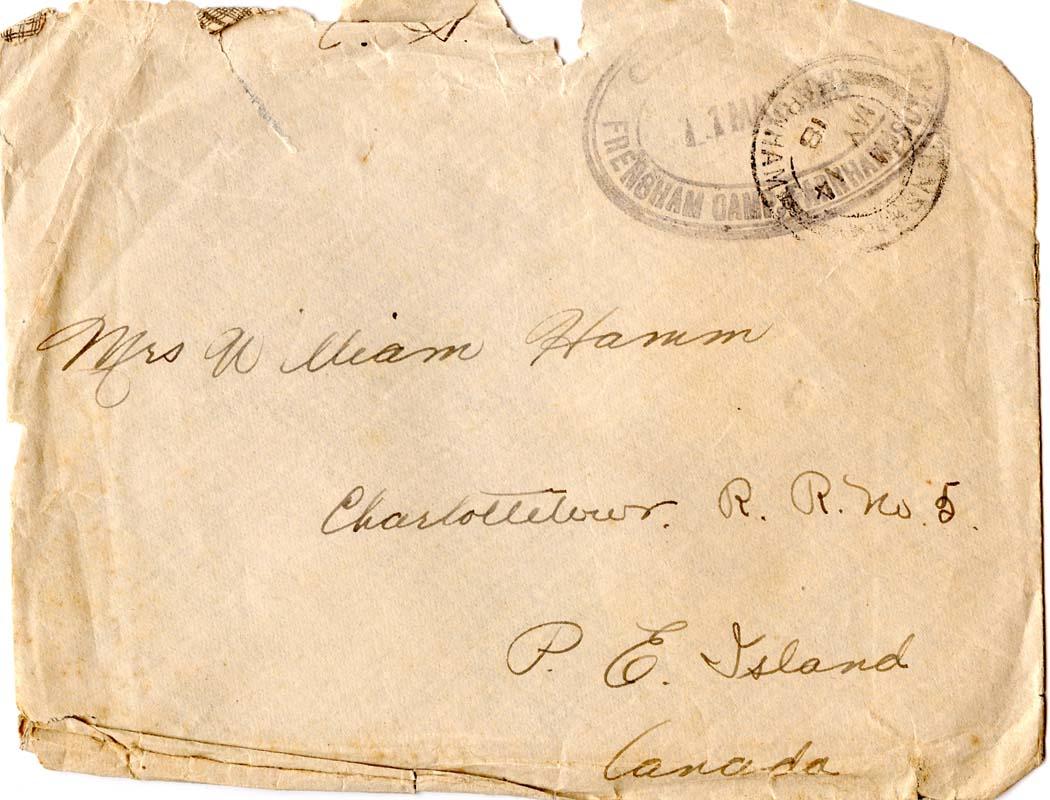 C. A.
FRENSHAM
FARNHAM
MY
18
Mrs William Hamm
Charlottetown. R. R. No. 5.
P. E. Island
Canada